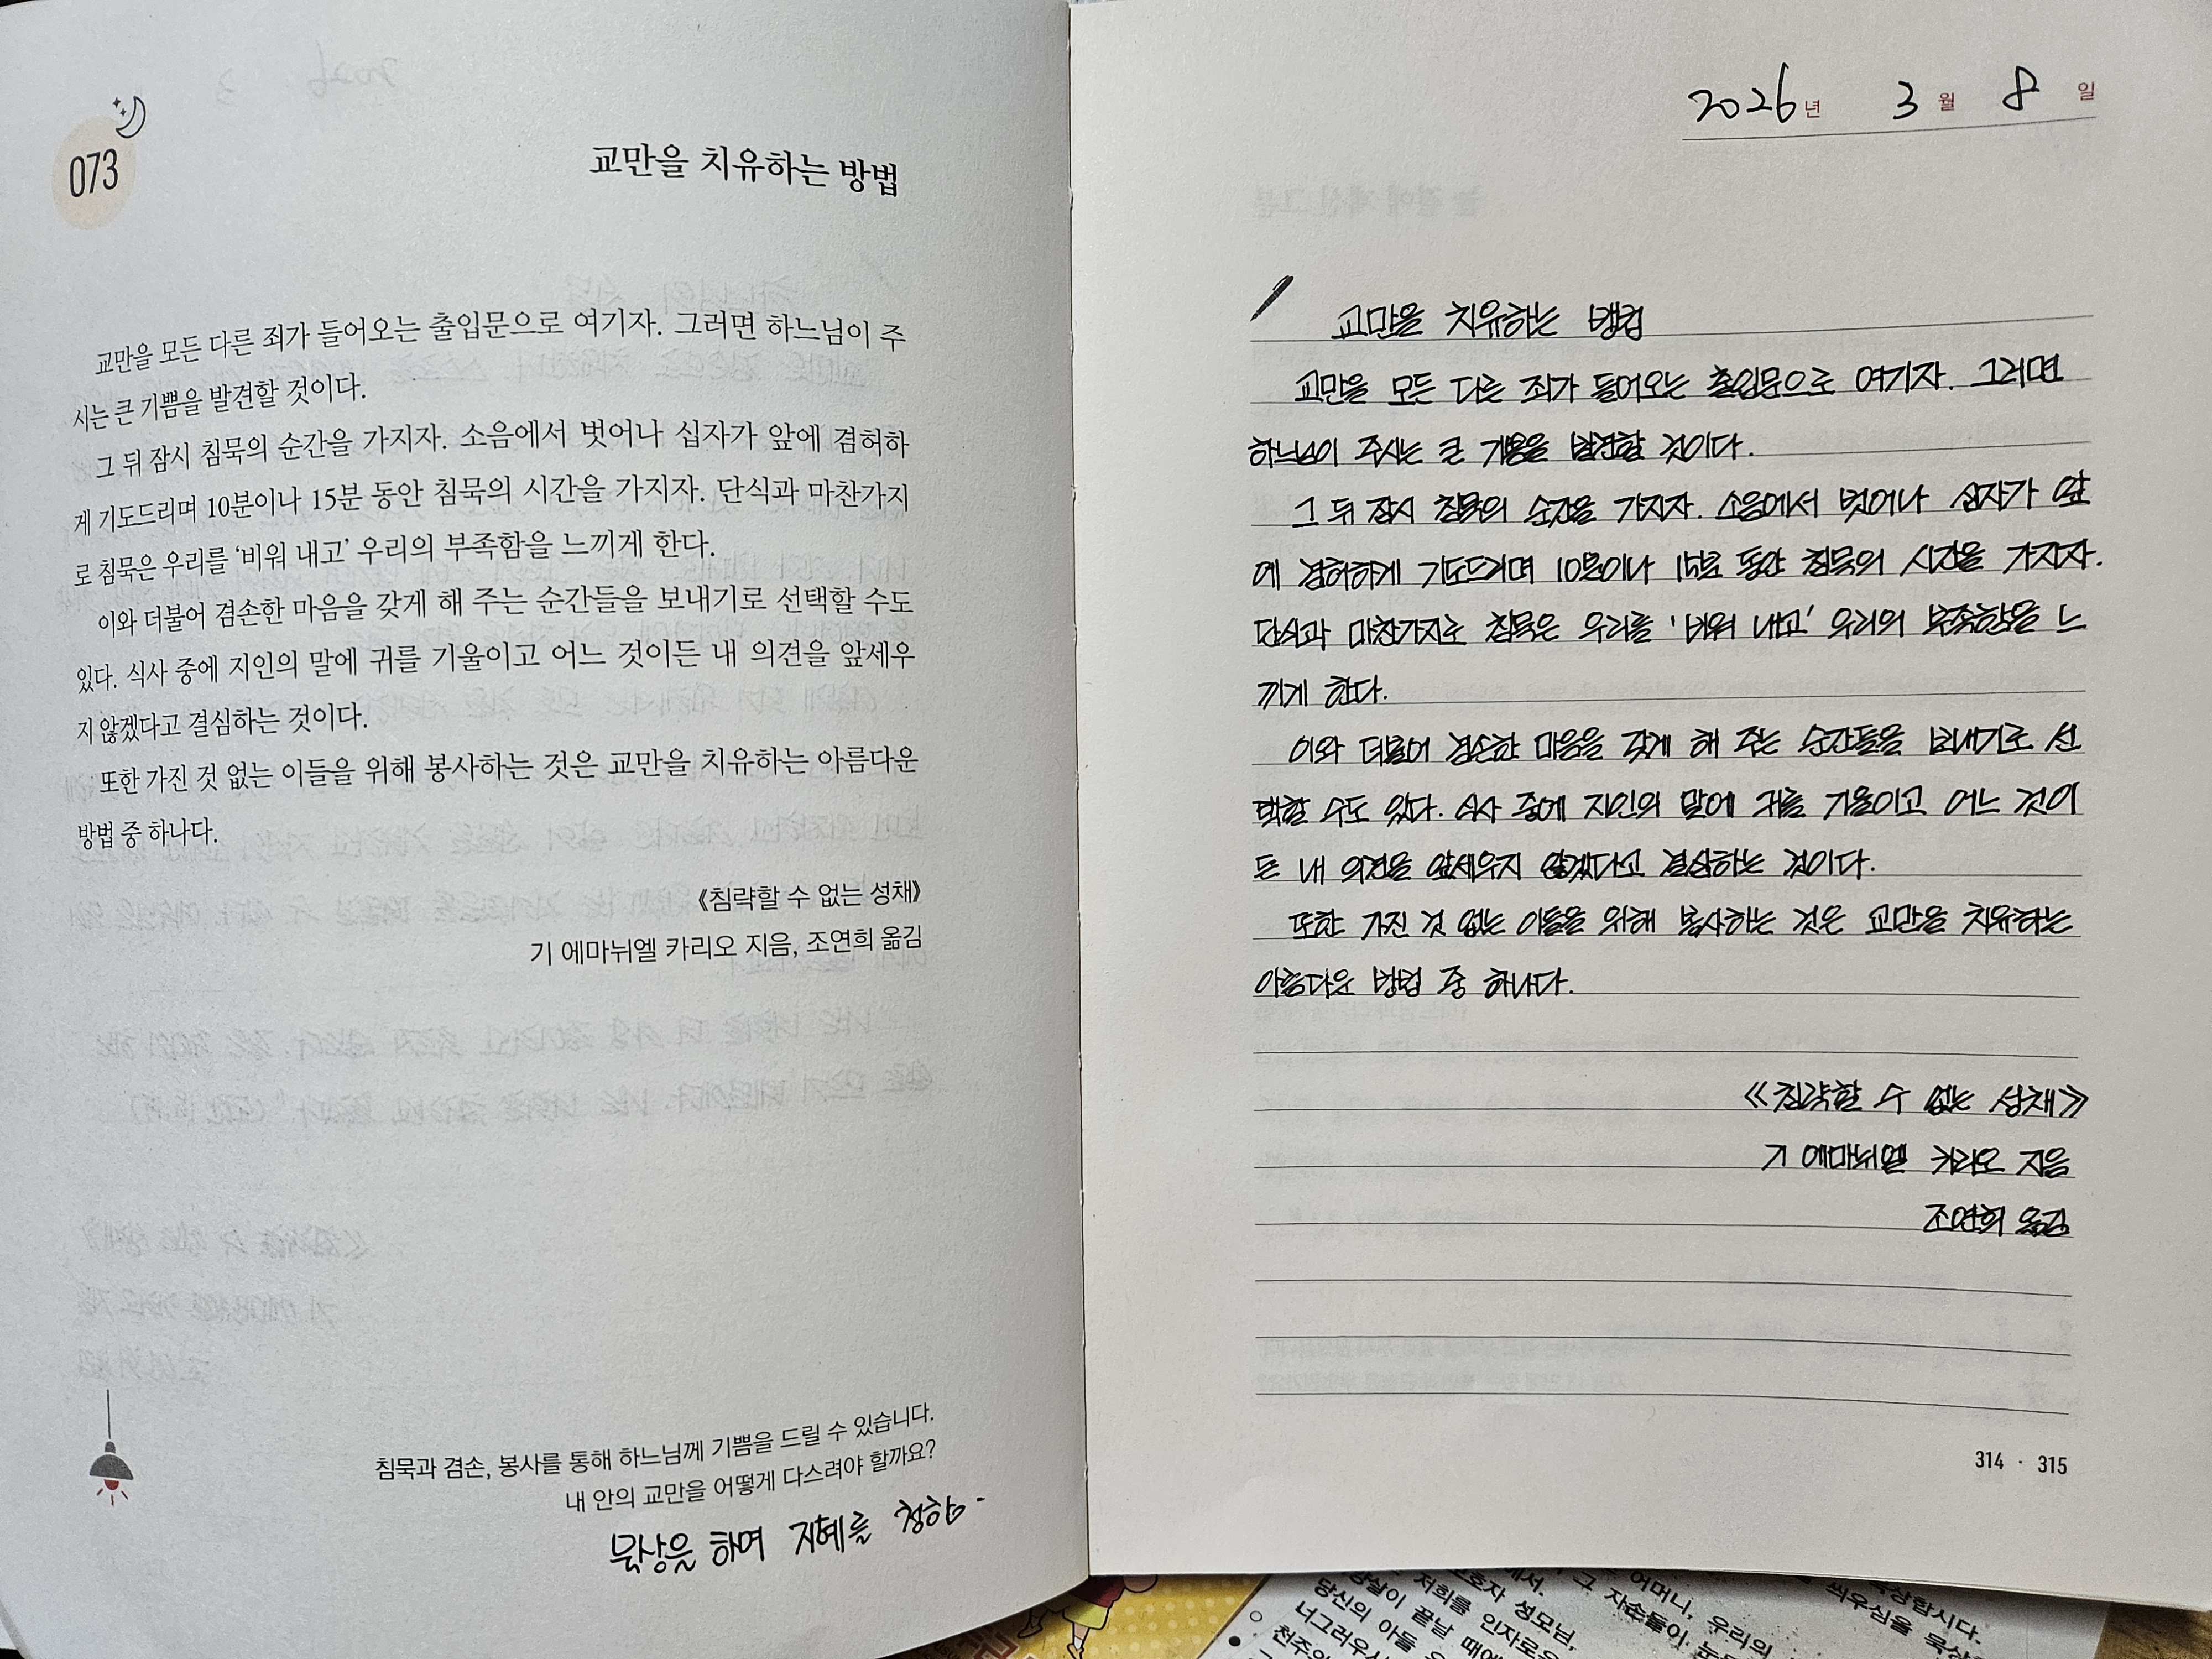 073
교만을 치유하는 방법
교만을 모든 다른 죄가 들어오는 출입문으로 여기자. 그러면 하느님이 주
시는 큰 기쁨을 발견할 것이다.
그 뒤 잠시 침묵의 순간을 가지자. 소음에서 벗어나 십자가 앞에 겸허하
게 기도드리며 10분이나 15분 동안 침묵의 시간을 가지자. 단식과 마찬가지
로 침묵은 우리를 ‘비워 내고’ 우리의 부족함을 느끼게 한다.
이와 더불어 겸손한 마음을 갖게 해 주는 순간들을 보내기로 선택할 수도
있다. 식사 중에 지인의 말에 귀를 기울이고 어느 것이든 내 의견을 앞세우
지 않겠다고 결심하는 것이다.
또한 가진 것 없는 이들을 위해 봉사하는 것은 교만을 치유하는 아름다운
방법 중 하나다.
《침략할 수 없는 성채》
기 에마뉘엘 카리오 지음, 조연희 옮김
침묵과 겸손, 봉사를 통해 하느님께 기쁨을 드릴 수 있습니다.
내 안의 교만을 어떻게 다스려야 할까요?
묵상을 하며 지혜를 청함.
2026년 3월 8일
교만을 치유하는 방법
교만을 모든 다른 죄가 들어오는 출입문으로 여기자. 그러면
하느님이 주시는 큰 기쁨을 발견할 것이다.
그 뒤 잠시 침묵의 순간을 가지자. 소음에서 벗어나 십자가 앞
에 겸허하게 기도드리며 10분이나 15분 동안 침묵의 시간을 가지자.
단식과 마찬가지로 침묵은 우리를 '비워 내고' 우리의 부족함을 느
끼게 한다.
이와 더불어 겸손한 마음을 갖게 해 주는 순간들을 보내기로 선
택할 수도 있다. 식사 중에 지인의 말에 귀를 기울이고 어느 것이
든 내 의견을 앞세우지 않겠다고 결심하는 것이다.
또한 가진 것 없는 이들을 위해 봉사하는 것은 교만을 치유하는
아름다운 방법 중 하나다.
《침략할 수 없는 성채》
기 에마뉘엘 카리오 지음
조연희 옮김
314 · 315
어머니, 우리의
그 자손들이
호자 성모님,
저희를 인자로운
끝날 때에
당신의 아들
너그러우시